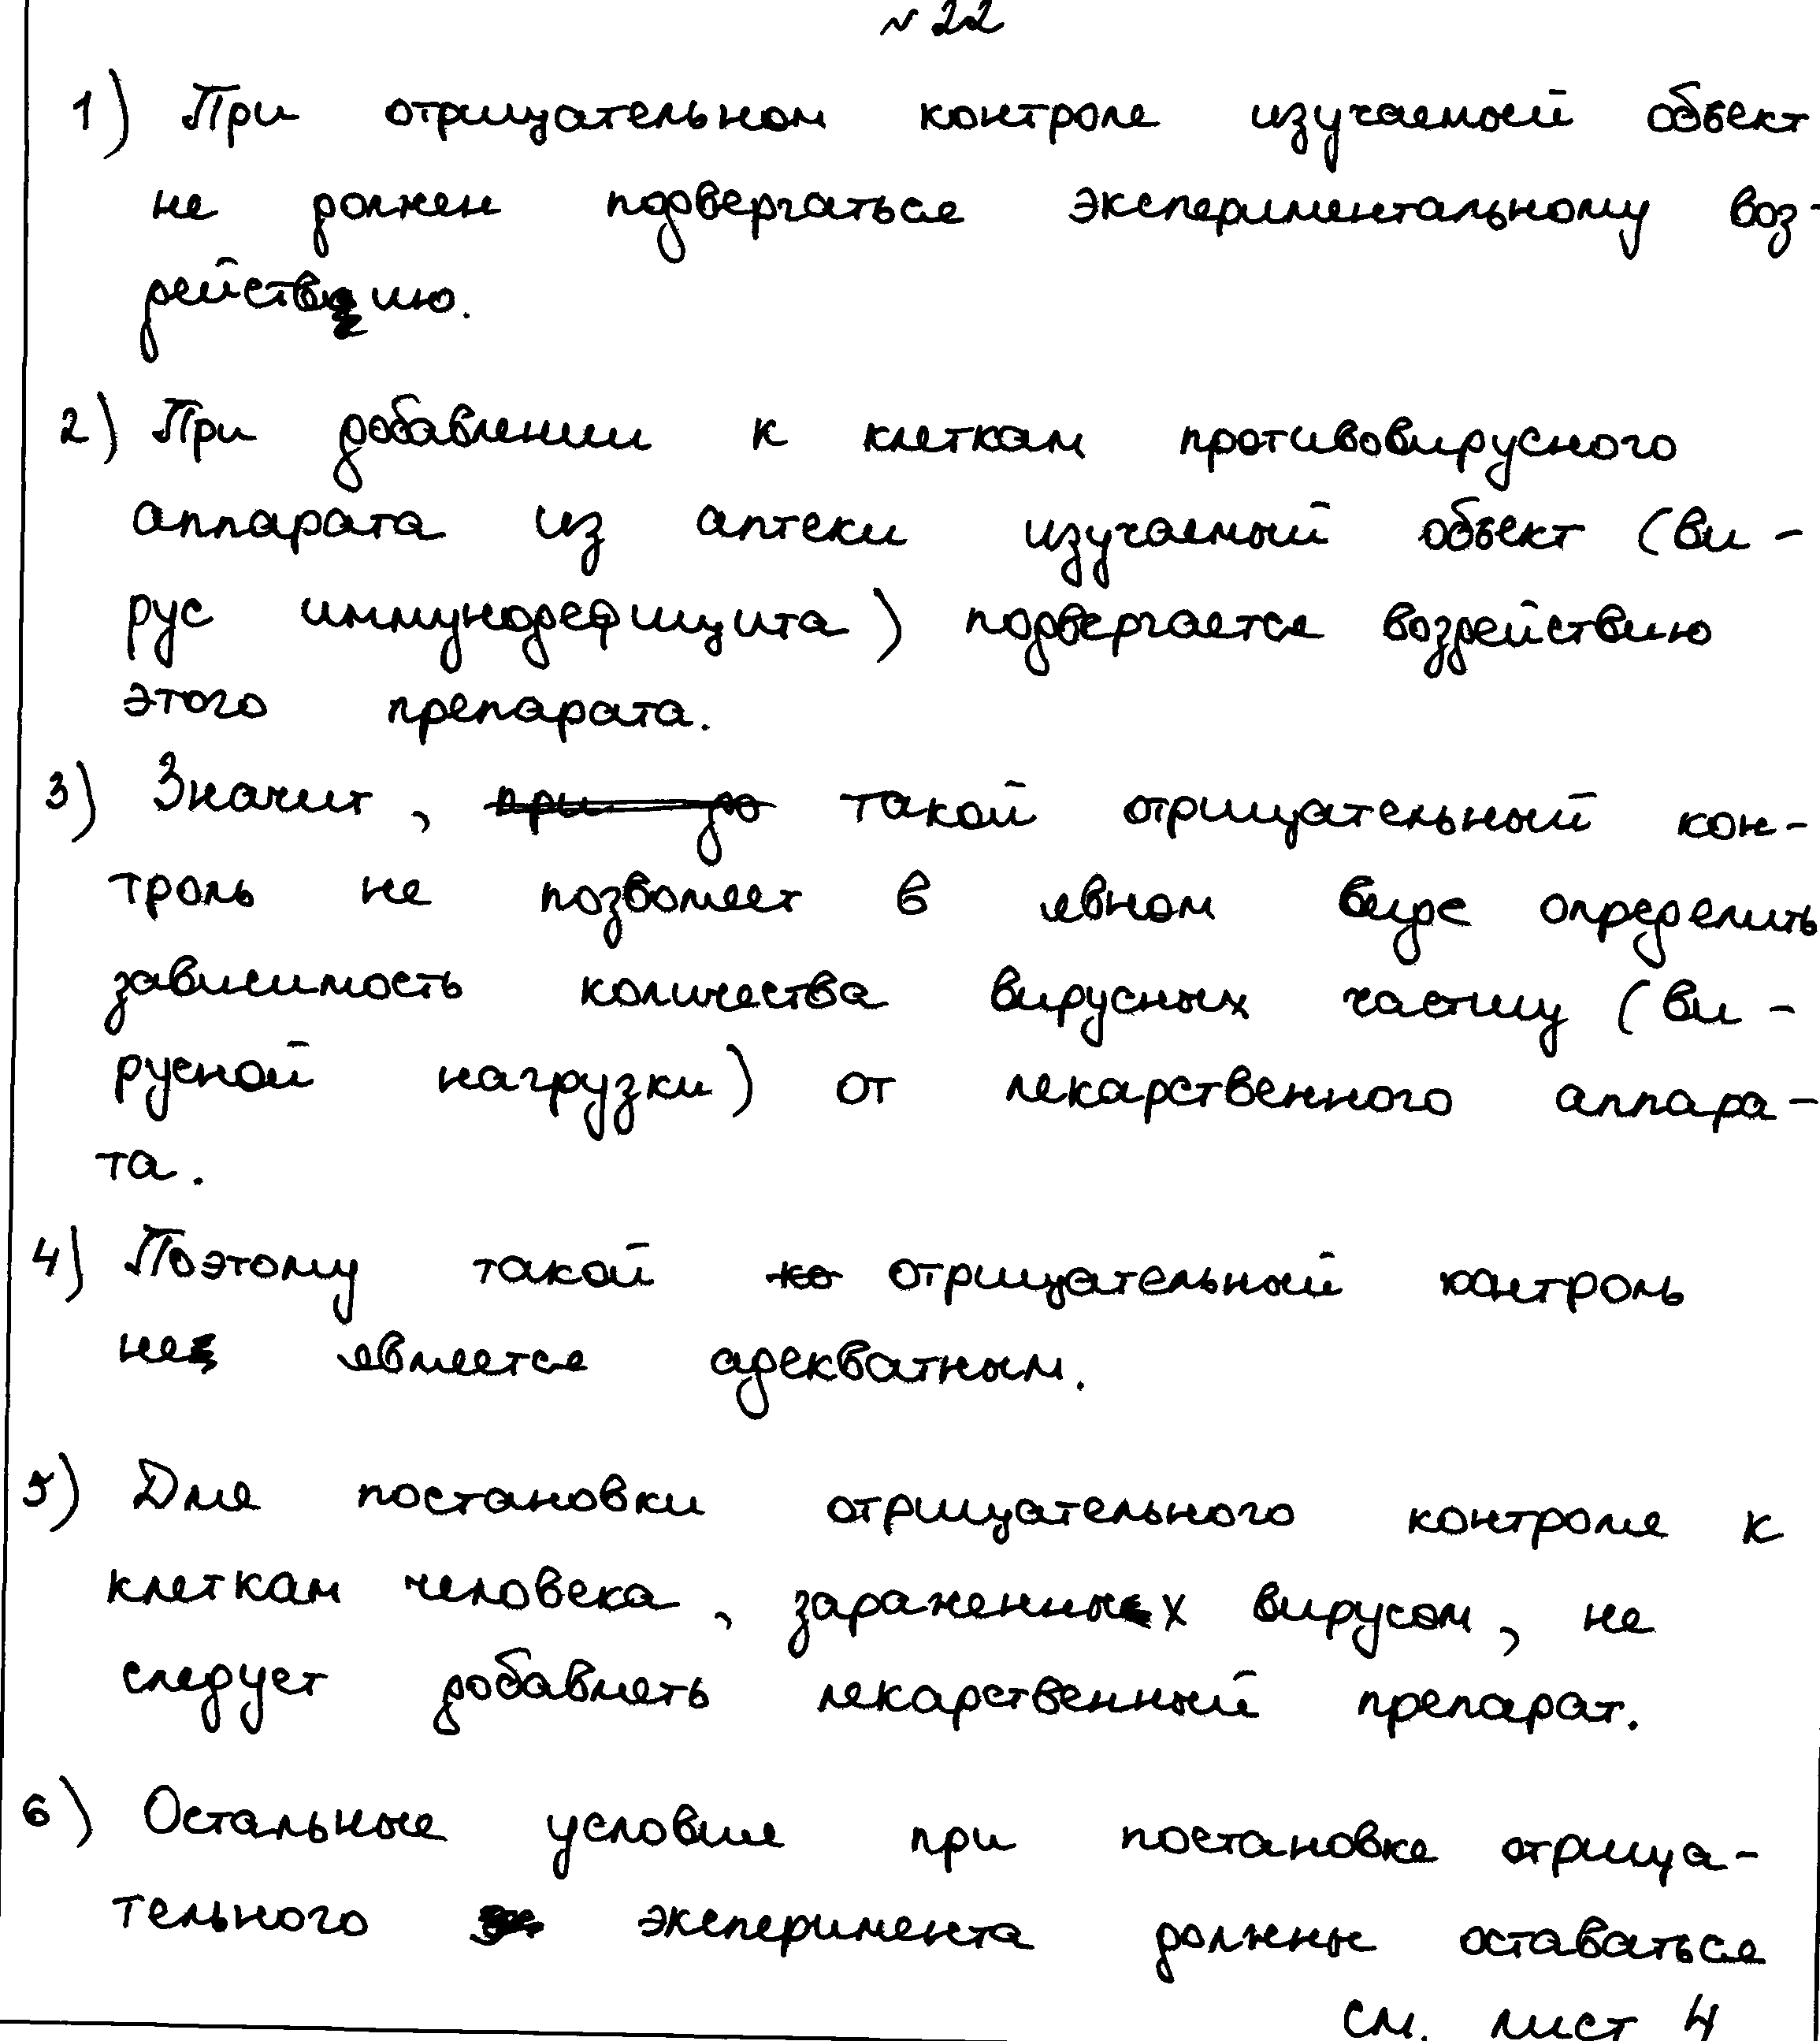 № 22
1) При отрицательном контроле изучаемый объект
не должен подвергаться экспериментальному воз-
действию.
2) При добавлении к клеткам противовирусного
аппарата из аптеки изучаемый объект (ви-
рус иммунодефицита) подвергается воздействию
этого препарата.
3) Значит, при до такой отрицательный кон-
троль не позволяет в явном виде определить
зависимость количества вирусных частиц (ви-
русной нагрузки) от лекарственного аппара-
та.
4) Поэтому такой ко отрицательный контроль
не является адекватным.
5) Для постановки отрицательного контроля к
клеткам человека, зараженных вирусом, не
следует добавлять лекарственный препарат.
6) Остальные условия при постановке отрица-
тельного эксперимента должны оставаться
см. лист 4